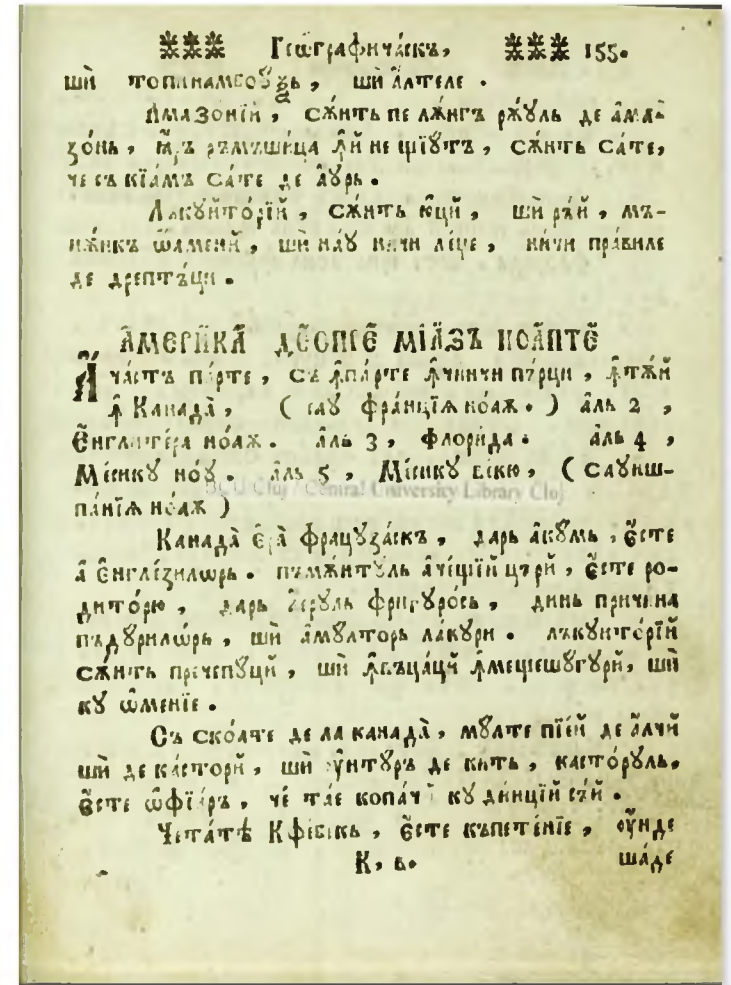 Геѡграфичѧ́скъ, 155.
шѝ топинамбоꙋзь, шѝ а҆́лтеле.
А҆мазоні́й, сѫ́нть пе лѫ́нгъ рѫ́ꙋль де а҆ма-
зо́нь, ꙗ҆́ръ рѫмѫши́ца ꙟ҆́й не щіꙋ́тъ, сѫ́нть са́те,
че съ кїа́мъ са́те де а҆́ꙋрь.
Лъкꙋито́рїй, сѫ́нть ю҆́ци, шѝ рѫ́й, мъ-
нѫ́нкъ ѡ҆́амени, шѝ на́ꙋ ни́чи ле́це, ни́чи пра́виле
де дрептъ́ци.
А҆МЕРИ́КА ДЕСПРЕ МІѦЗЪ НОА́ПТЕ
А҆чѧ́стъ па́рте, съ ꙟ҆па́рте ꙟ҆чи́нчи пърци, ꙟ҆тѫ́й
ꙟ҆ Канада̀, (саꙋ̀ фра́нцїѧ но́аѫ.) а҆́ль 2,
Е҆нглите́ра но́аѫ. а҆́ль 3, Флори́да. а҆́ль 4,
Ме́сикꙋ но́ꙋ. а҆́ль 5, Ме́сикꙋ ве́кю, (саꙋ̀ иш-
па́нїѧ но́аѫ)
BCU Cluj / Central University Library Cluj
Канада̀ є҆ра̀ францꙋзѧ́скъ, дарь а҆кꙋ́мь, є҆́сте
а҆ Е҆нгле́зилѡрь. пъмѫ́нтꙋль аче́щїй църй, є҆́сте ро-
дито́рю, дарь а҆́ерꙋль фригꙋро́сь, динь при́чина
пъдꙋ́рилѡрь, шѝ а҆ мꙋ́лторь ла́кꙋри. лъкꙋито́рїй
сѫ́нть приче́пꙋци, шѝ ꙟ҆въца́ци ꙟ҆мещешꙋ́гꙋри, шѝ
кꙋ ѡ҆мені́е.
Съ ско́ате де ла канада̀, мꙋ́лте піе́й де а҆́лчй
шѝ де ка́сторй, шѝ ꙋ҆нтꙋ́ръ де кить, касто́рꙋль,
є҆́сте ѡ҆ фїа́ръ, че та́е копа́чї кꙋ ди́нцїй съ́й.
Чета́тѣ Кфебекь, є҆́сте къпете́нїе, оу҆́нде
К, в. ша́де